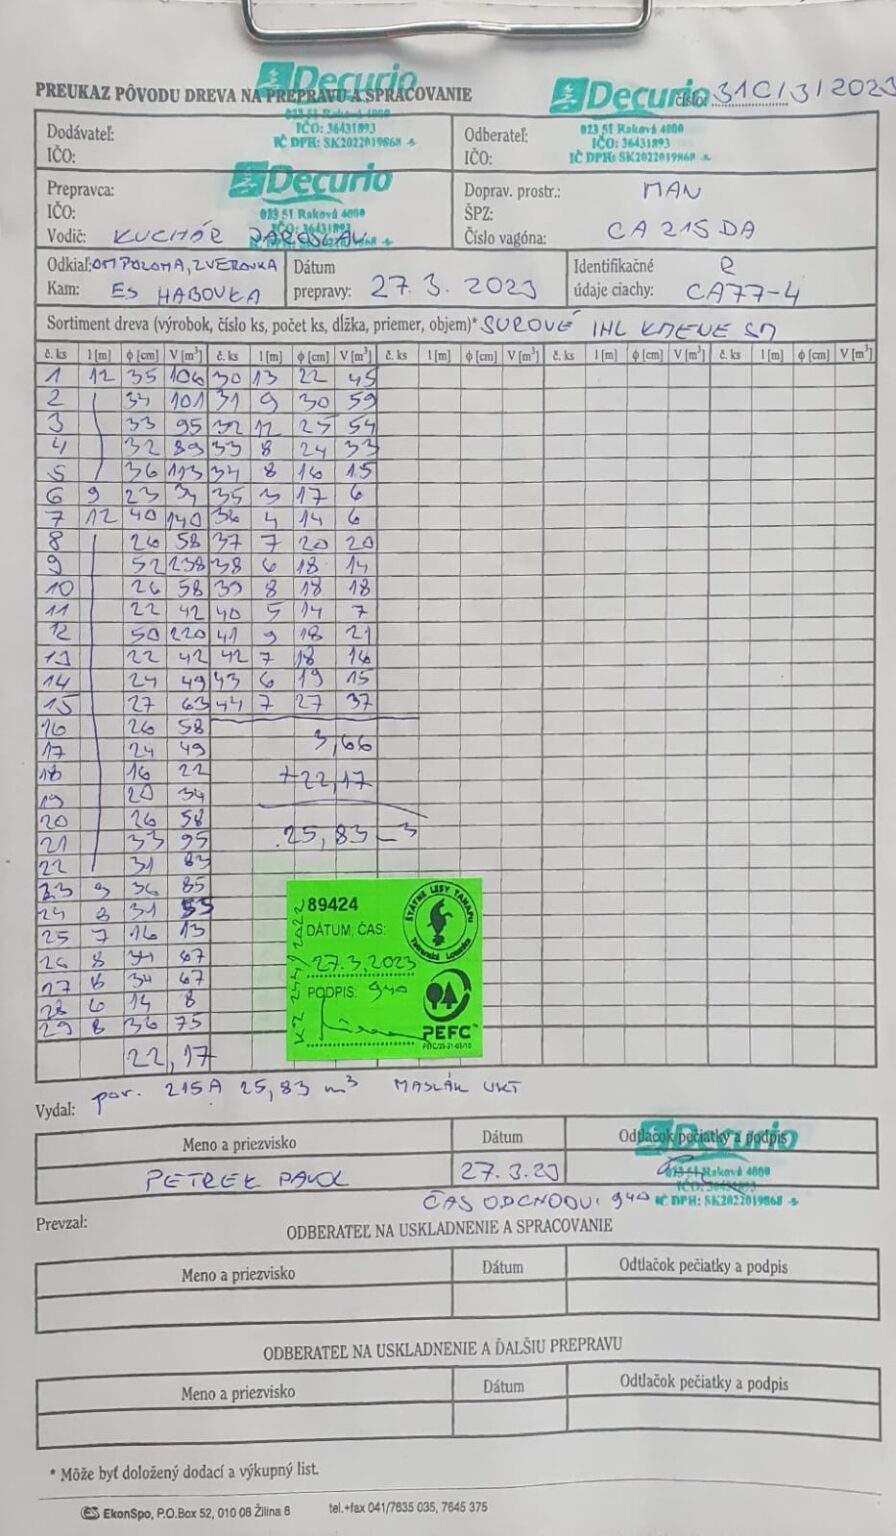 Decurio
Decurio
PREUKAZ PÔVODU DREVA NA PREPRAVU A SPRACOVANIE
číslo 31C/3/2023
023 51 Raková 4000
IČO: 36431893
IČ DPH: SK2022019868
023 51 Raková 4000
IČO: 36431893
IČ DPH: SK2022019868
Dodávateľ:
IČO:
Odberateľ:
IČO:
Decurio
023 51 Raková 4000
Prepravca:
IČO:
Vodič: KUCHÁR JAROSLAV
Doprav. prostr.: MAN
ŠPZ:
Číslo vagóna: CA 215 DA
Odkiaľ: OM POLOMA, ZVEROVKA
Kam: ES HABOVKA
Dátum
prepravy: 27. 3. 2023
Identifikačné R
údaje ciachy: CA77-4
Sortiment dreva (výrobok, číslo ks, počet ks, dĺžka, priemer, objem)* SUROVÉ IHL KMENE SM
č. ks l [m] ϕ [cm] V [m³] č. ks l [m] ϕ [cm] V [m³] č. ks l [m] ϕ [cm] V [m³] č. ks l [m] ϕ [cm] V [m³] č. ks l [m] ϕ [cm] V [m³]
1 12 35 106 30 13 22 45
2 34 101 31 9 30 59
3 33 95 32 12 25 54
4 32 89 33 8 24 33
5 36 113 34 8 16 15
6 9 23 34 35 3 17 6
7 12 40 140 36 4 14 6
8 26 58 37 7 20 20
9 52 238 38 6 18 14
10 26 58 39 8 18 18
11 22 42 40 5 14 7
12 50 220 41 9 18 21
13 22 42 42 7 18 16
14 24 49 43 6 19 15
15 27 63 44 7 27 37
16 26 58
17 24 49 3,66
18 16 22 +22,17
19 20 34
20 26 58
21 33 95 25,83 m³
22 31 83
23 9 36 85
24 8 31 55
25 7 16 13
26 8 34 67
27 8 34 67
28 6 14 8
29 8 36 75
22,17
89424
DÁTUM, ČAS:
27.3.2023
PODPIS: 940
ŠTÁTNE LESY TANAPU
Tatranská Lomnica
PEFC
Vydal: por. 215A 25,83 m³ MASLÁK UKT
Meno a priezvisko Dátum Odtlačok pečiatky a podpis
PETREK PAVOL 27.3.23
Decurio
023 51 Raková 4000
IČ DPH: SK2022019868
ČAS ODCHODU: 940
Prevzal:
ODBERATEĽ NA USKLADNENIE A SPRACOVANIE
Meno a priezvisko Dátum Odtlačok pečiatky a podpis
ODBERATEĽ NA USKLADNENIE A ĎALŠIU PREPRAVU
Meno a priezvisko Dátum Odtlačok pečiatky a podpis
* Môže byť doložený dodací a výkupný list.
EkonSpo, P.O.Box 52, 010 08 Žilina 8 tel.+fax 041/7635 035, 7645 375